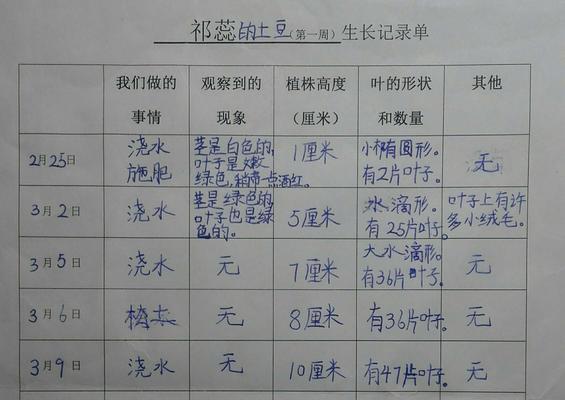 祁蕊的土豆(第一周)生长记录单
我们做的事情 观察到的现象 植株高度(厘米) 叶的形状和数量 其他
2月25日 浇水 施肥 茎是白色的，叶子是嫩绿色，稍带一点酒红。 1厘米 小椭圆形。有2片叶子。 无
3月2日 浇水 茎是绿色的，叶子也是绿色的。 5厘米 水滴形。有25片叶子。 叶子上有许多小绒毛。
3月5日 浇水 无 7厘米 大水滴形。有36片叶子。 无
3月6日 无 8厘米 有36片叶子。 无
3月9日 浇水 无 10厘米 有47片叶子。 无